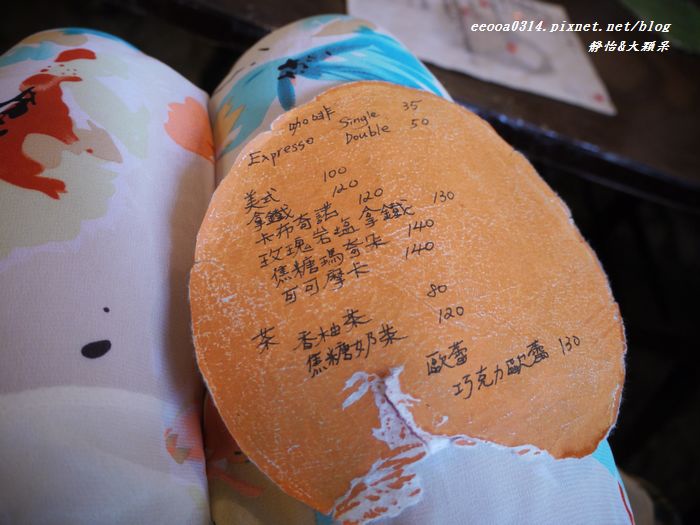 eeooa0314.pixnet.net/blog
靜怡&大顆呆
咖啡
Expresso Single 35
Double 50
美式 100
拿鐵 120
卡布奇諾 120
玫瑰岩塩拿鐵 130
焦糖瑪奇朵 140
可可摩卡 140
茶 香柚茶 80
焦糖奶茶 120
歐蕾
巧克力歐蕾 130